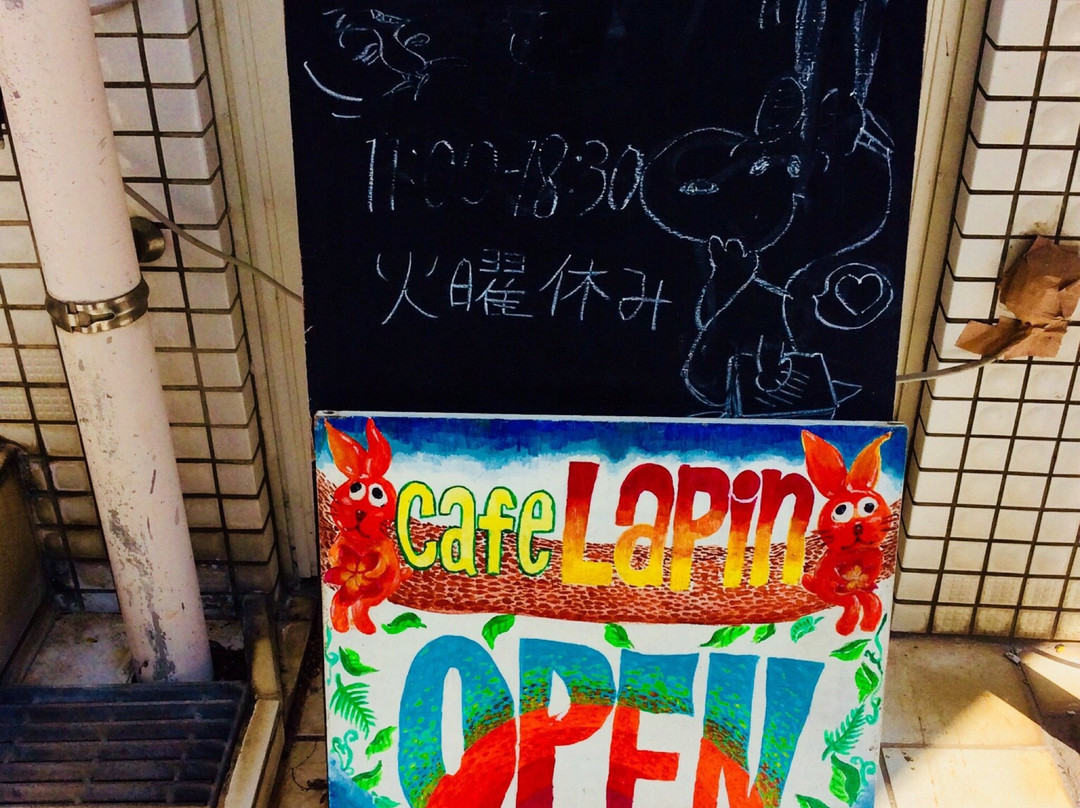 11:00-18:30
火曜休み
cafe LaPin
OPEN